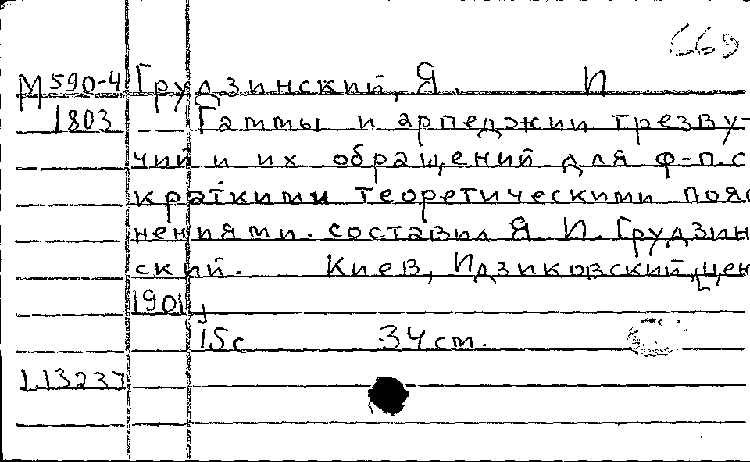 669
М 590-4 Грудзинский, Я. И
1803 Гаммы и арпеджии трезву-
чий и их обращений для ф-п. с
краткими теоретическими пояс
нениями. составил Я. И. Грудзин
ский. Киев, Идзиковский, цен
1901,
15 с 34 cm.
113237